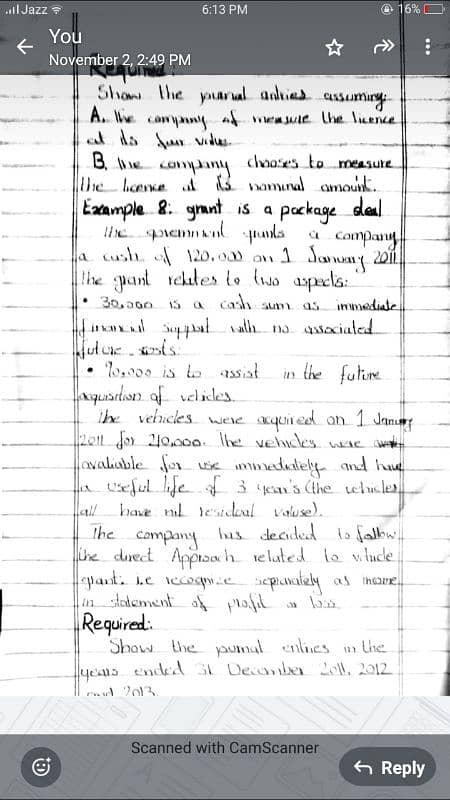 Jazz 6:13 PM 16%
You
November 2, 2:49 PM
Required:
Show the journal entries assuming:
A. The company measure the licence
at its fair value
B. The company chooses to measure
the licence at its nominal amount.
Example 8: grant is a package deal
The government grants a company
a cash of 120,000 on 1 January 2011
the grant relates to two aspects:
• 30,000 is a cash sum as immediate
financial support with no associated
future costs.
• 90,000 is to assist in the future
aquisition of vehicles.
The vehicles were acquired on 1 January
2011 for 210,000. The vehicles were
avaliable for use immediately and have
a useful life of 3 year's (the vehicles
all have nil residual value).
The company has decided to follow
the direct Approach related to vehicle
grant. i.e recognize seperately as income
in statement of profit or loss
Required:
Show the journal entries in the
years ended 31 December 2011, 2012
and 2013
Scanned with CamScanner
Reply